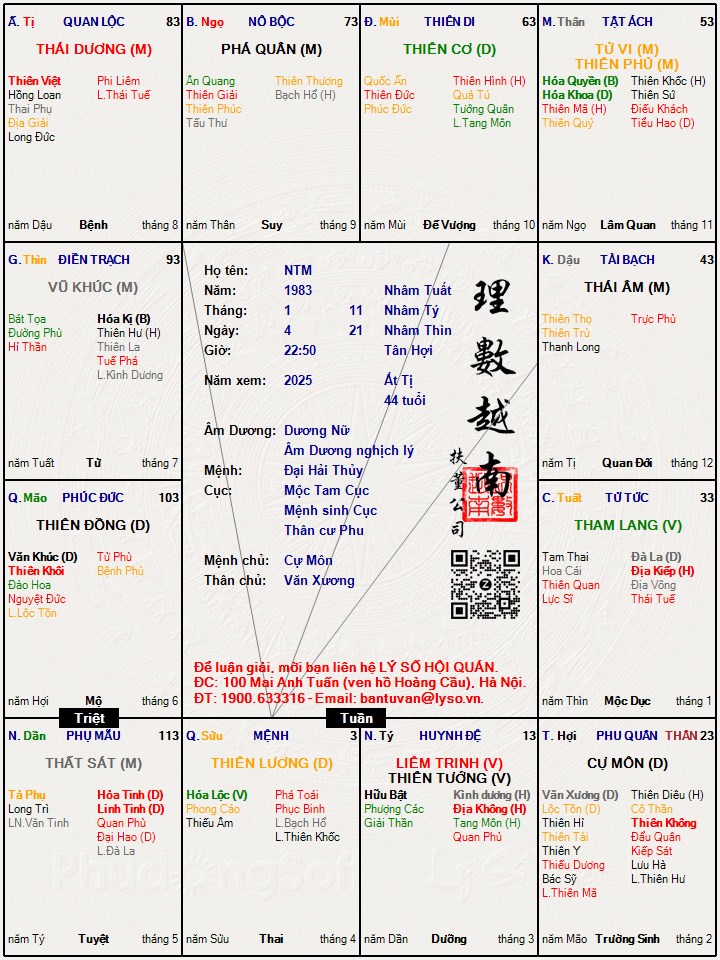 Ấ. Tị QUAN LỘC 83
THÁI DƯƠNG (M)
Thiên Việt Phi Liêm
Hồng Loan L.Thái Tuế
Thai Phụ
Địa Giải
Long Đức
năm Dậu Bệnh tháng 8
B. Ngọ NÔ BỘC 73
PHÁ QUÂN (M)
Ân Quang Thiên Thương
Thiên Giải Bạch Hổ (H)
Thiên Phúc
Tấu Thư
năm Thân Suy tháng 9
Đ. Mùi THIÊN DI 63
THIÊN CƠ (D)
Quốc Ấn Thiên Hình (H)
Thiên Đức Quả Tú
Phúc Đức Tướng Quân
L.Tang Môn
năm Mùi Đế Vượng tháng 10
M. Thân TẬT ÁCH 53
TỬ VI (M)
THIÊN PHỦ (M)
Hóa Quyền (B) Thiên Khốc (H)
Hóa Khoa (D) Thiên Sứ
Thiên Mã (H) Điếu Khách
Thiên Quý Tiểu Hao (D)
năm Ngọ Lâm Quan tháng 11
G. Thìn ĐIỀN TRẠCH 93
VŨ KHÚC (M)
Bát Tọa Hóa Kị (B)
Đường Phù Thiên Hư (H)
Hỉ Thần Thiên La
Tuế Phá
L.Kình Dương
năm Tuất Tử tháng 7
Họ tên: NTM
Năm: 1983 Nhâm Tuất
Tháng: 1 11 Nhâm Tý
Ngày: 4 21 Nhâm Thìn
Giờ: 22:50 Tân Hợi
Năm xem: 2025 Ất Tị
44 tuổi
Âm Dương: Dương Nữ
Âm Dương nghịch lý
Mệnh: Đại Hải Thủy
Cục: Mộc Tam Cục
Mệnh sinh Cục
Thân cư Phu
Mệnh chủ: Cự Môn
Thân chủ: Văn Xương
理數越南
扶董公司
Để luận giải, mời bạn liên hệ LÝ SỐ HỘI QUÁN.
ĐC: 100 Mai Anh Tuấn (ven hồ Hoàng Cầu), Hà Nội.
ĐT: 1900.633316 - Email: bantuvan@lyso.vn.
K. Dậu TÀI BẠCH 43
THÁI ÂM (M)
Thiên Thọ Trực Phù
Thiên Trù
Thanh Long
năm Tị Quan Đới tháng 12
Q. Mão PHÚC ĐỨC 103
THIÊN ĐỒNG (D)
Văn Khúc (D) Tử Phù
Thiên Khôi Bệnh Phù
Đào Hoa
Nguyệt Đức
L.Lộc Tồn
năm Hợi Mộ tháng 6
C. Tuất TỬ TỨC 33
THAM LANG (V)
Tam Thai Đà La (D)
Hoa Cái Địa Kiếp (H)
Thiên Quan Địa Võng
Lực Sĩ Thái Tuế
năm Thìn Mộc Dục tháng 1
Triệt
Tuần
N. Dần PHỤ MẪU 113
THẤT SÁT (M)
Tả Phụ Hỏa Tinh (D)
Long Trì Linh Tinh (D)
LN.Văn Tinh Quan Phù
Đại Hao (D)
L.Đà La
năm Tý Tuyệt tháng 5
Q. Sửu MỆNH 3
THIÊN LƯƠNG (D)
Hóa Lộc (V) Phá Toái
Phong Cáo Phục Binh
Thiếu Âm L.Bạch Hổ
L.Thiên Khốc
năm Sửu Thai tháng 4
N. Tý HUYNH ĐỆ 13
LIÊM TRINH (V)
THIÊN TƯỚNG (V)
Hữu Bật Kình dương (H)
Phượng Các Địa Không (H)
Giải Thần Tang Môn (H)
Quan Phủ
năm Dần Dưỡng tháng 3
T. Hợi PHU QUÂN THÂN 23
CỰ MÔN (D)
Văn Xương (D) Thiên Diêu (H)
Lộc Tồn (D) Cô Thần
Thiên Hỉ Thiên Không
Thiên Tài Đẩu Quân
Thiên Y Kiếp Sát
Thiếu Dương Lưu Hà
Bác Sỹ L.Thiên Hư
L.Thiên Mã
năm Mão Trường Sinh tháng 2